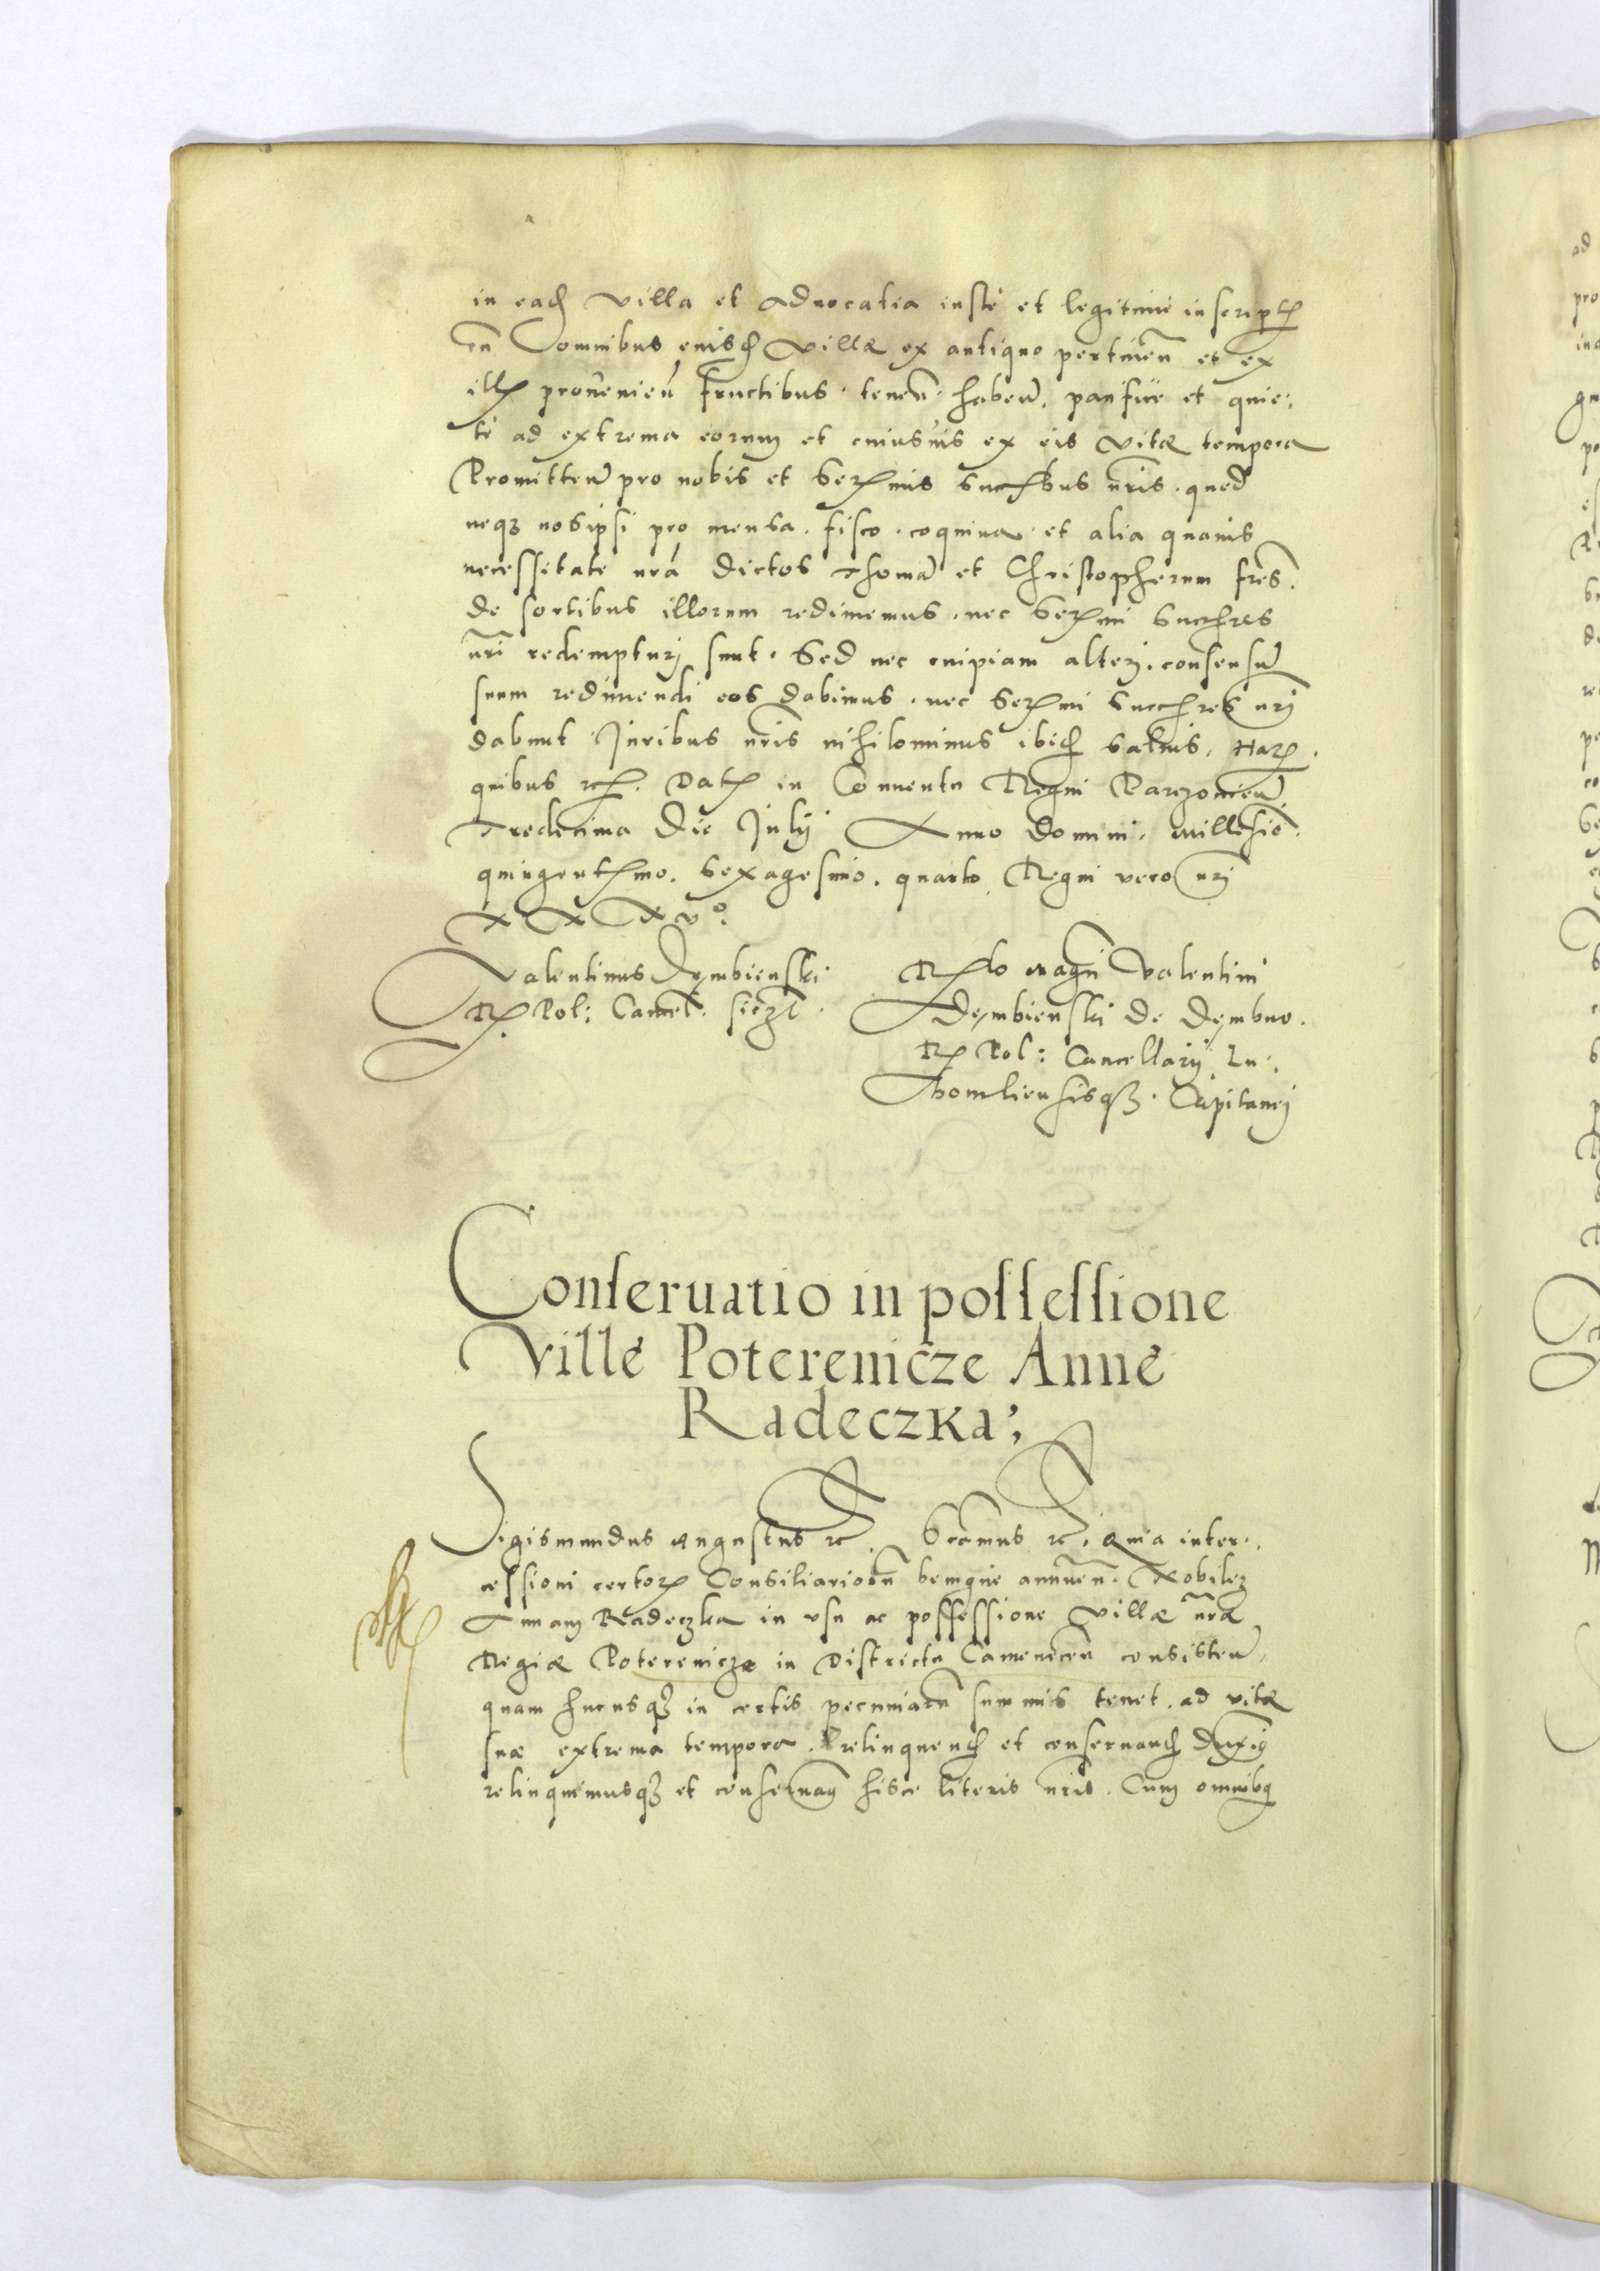 in ead villa et advocatia iuste et legitime inscript
cu omnibus eiusd villæ ex antiquo pertinen et ex
ill provenien fructibus · tenen · haben. pacifice et quie:
te ad extrema eorum et cuiusvis ex eis vitæ tempora
Promitten pro nobis et Sermis Succribus nris · quod
neqȝ nos ipsi pro mensa · fisco · coquina · et alia quavis
necessitate nra dictos Thoma et Christopherum fres.
de sortibus illorum redimemus · nec Sermi Succres
nri redempturi sunt · Sed nec cuipiam alteri · consensu
suum redimendi eos dabimus · nec Sermi Succres nri
dabunt Juribus nris nihilominus ibid salvis. Har
quibus rc. Dat in Conventu Regni Parczovien
Tredecima die Julij Anno Domini. Millesio.
quingentmo. Sexagesimo. quarto Regni vero nri
XXXVo.
Valentinus Dembienski
R Pol: Cancel.
R lo Magci Valentini
Dembienski de Dembno.
R Pol: Cancellarij
Capitanei
Conservatio in possessione
Ville Poterenicze Anne
Radeczka;
Sigismundus Augustus rc. rc. Quia inter:
cessioni certor Consiliarioru benigne annuen. Nobilem
Annam Radeczka in usu ac possessione Villæ nræ
Regiæ Poterenicze in Districtu Camenecen consisten
quam hucusqȝ in certis pecuniaru summis tenet. ad vitæ
suæ extrema tempora. relinquend et conservand duxi
relinquimusqȝ et conservam hisce literis nris. Cum omnibq